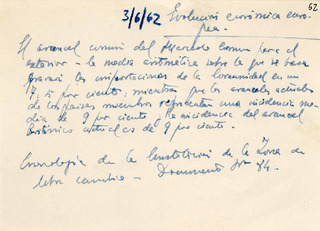 62
3/6/62 Evolución económica euro-
pea.
El arancel común del Mercado Común para el
exterior - la media aritmética sobre la que se basa
gravará las importaciones de la Comunidad en un
7,5 por ciento, mientras que los aranceles actuales
de los países miembros representan una incidencia me-
dia de 9 por ciento. La incidencia del arancel
británico actual es de 9 por ciento.
Cronología de la Constitución de la Zona de
libre cambio - Documento nº 34.